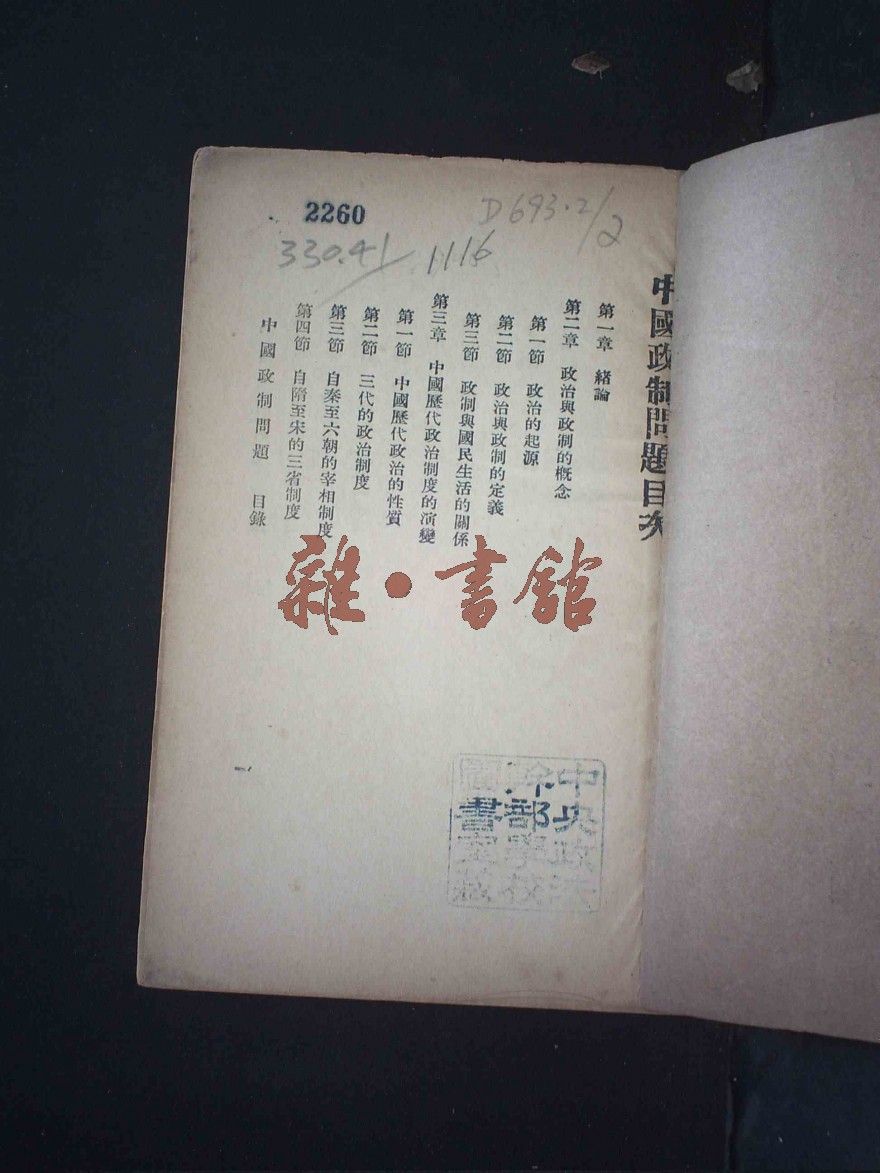 2260
D693.2/2
330.41 1116
中國政制問題目次
第一章 緒論
第二章 政治與政制的概念
第一節 政治的起源
第二節 政治與政制的定義
第三節 政制與國民生活的關係
第三章 中國歷代政治制度的演變
第一節 中國歷代政治的性質
第二節 三代的政治制度
第三節 自秦至六朝的宰相制度
第四節 自隋至宋的三省制度
中國政制問題 目錄
一
雜·書館
中央政法
幹部學校
圖書室藏